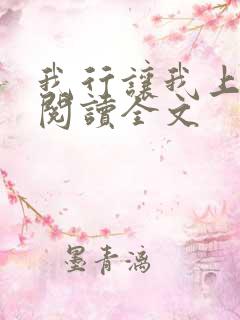 我行讓我上
閱讀全文
墨青漓